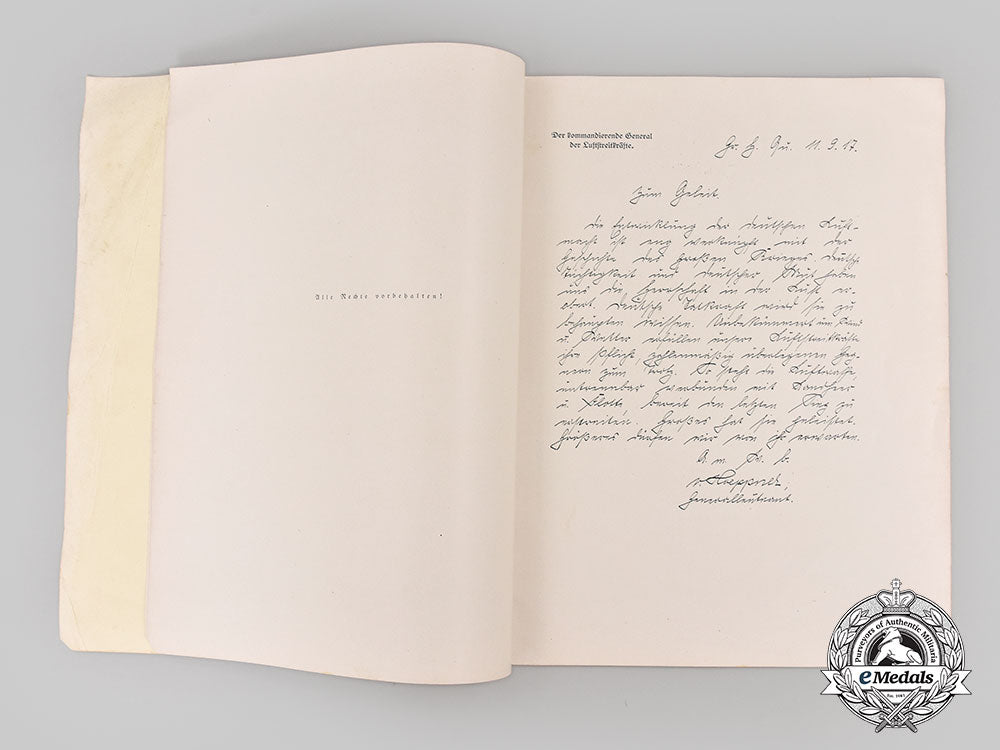 Alle Rechte vorbehalten!
Der kommandierende General
der Luftstreitkräfte.
Gr. H. Qu. 11. 9. 17.
Zum Geleit.
Die Entwicklung der deutschen Luft-
macht ist eng verknüpft mit der
Geschichte des großen Krieges. Deutsche
Tüchtigkeit und deutscher Mut haben
uns die Herrschaft in der Luft er-
obert. Deutsche Tatkraft wird sie zu
behaupten wissen. Unbekümmert um Feind
u. Wetter erfüllen unsere Luftstreitkräfte
ihre Pflicht, zahlenmäßig überlegenen Geg-
nern zum Trotz. So steht die Luftwaffe,
untrennbar verbunden mit Landheer
u. Flotte bereit den letzten Sieg zu
erstreiten. Großes hat sie geleistet.
Größeres dürfen wir von ihr erwarten.
v. Hoeppner,
Generalleutnant.
Purveyors of Authentic Militaria
eMedals